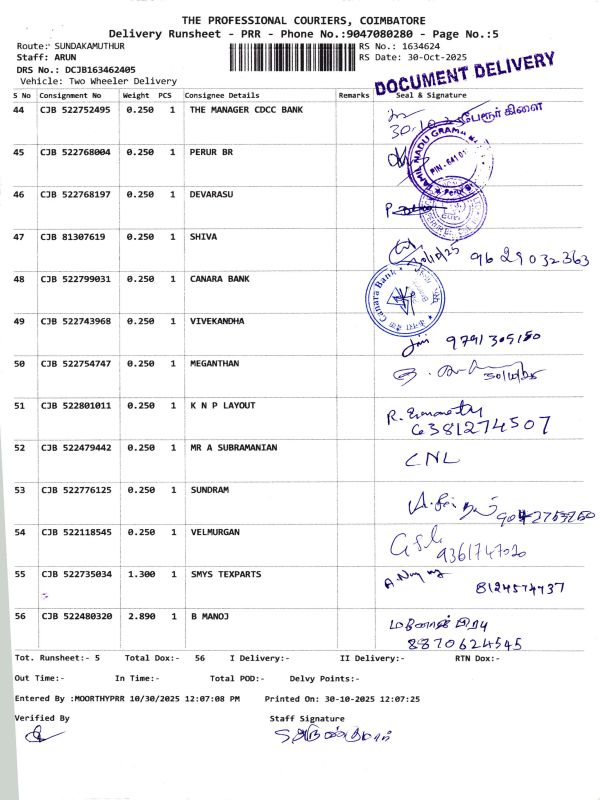 THE PROFESSIONAL COURIERS, COIMBATORE
Delivery Runsheet - PRR - Phone No.:9047080280 - Page No.:5
Route: SUNDAKAMUTHUR RS No.: 1634624
Staff: ARUN RS Date: 30-Oct-2025
DRS No.: DCJB163462405
Vehicle: Two Wheeler Delivery
DOCUMENT DELIVERY
S No Consignment No Weight PCS Consignee Details Remarks Seal & Signature
44 CJB 522752495 0.250 1 THE MANAGER CDCC BANK
45 CJB 522768004 0.250 1 PERUR BR
46 CJB 522768197 0.250 1 DEVARASU
47 CJB 81307619 0.250 1 SHIVA 30/10/25 9629032363
48 CJB 522799031 0.250 1 CANARA BANK Canara Bank
49 CJB 522743968 0.250 1 VIVEKANDHA 9791305150
50 CJB 522754747 0.250 1 MEGANTHAN 30/10/25
51 CJB 522801011 0.250 1 K N P LAYOUT 6381274507
52 CJB 522479442 0.250 1 MR A SUBRAMANIAN CNL
53 CJB 522776125 0.250 1 SUNDRAM
54 CJB 522118545 0.250 1 VELMURGAN
55 CJB 522735034 1.300 1 SMYS TEXPARTS 8124574737
56 CJB 522480320 2.890 1 B MANOJ 8870624545
Tot. Runsheet:- 5 Total Dox:- 56 I Delivery:- II Delivery:- RTN Dox:-
Out Time:- In Time:- Total POD:- Delvy Points:-
Entered By :MOORTHYPRR 10/30/2025 12:07:08 PM Printed On: 30-10-2025 12:07:25
Verified By Staff Signature